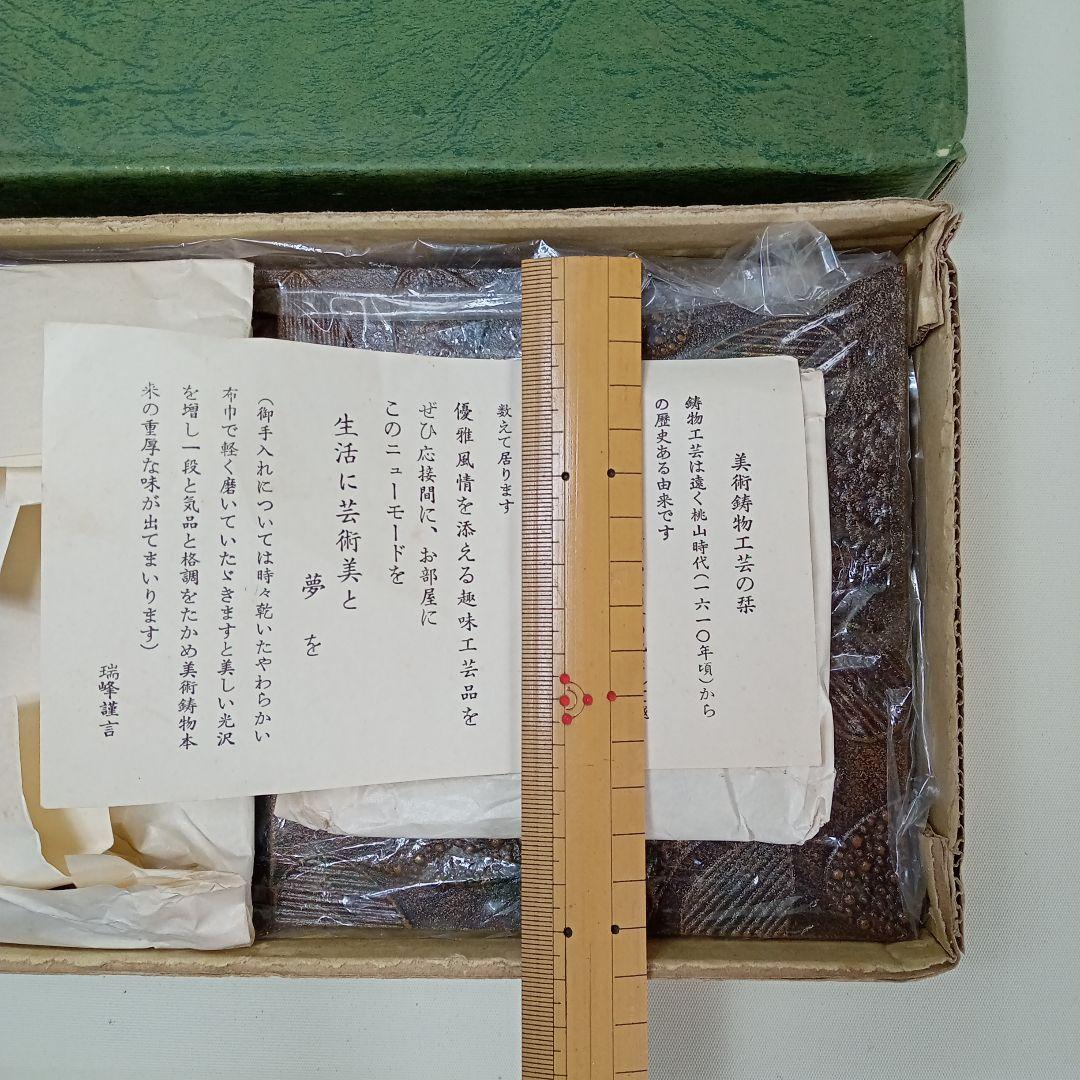 美術鋳物工芸の栞
鋳物工芸は遠く桃山時代(一六一〇年頃)から
の歴史ある由来です
数えて居ります
優雅風情を添える趣味工芸品を
ぜひ応接間に、お部屋に
このニューモードを
生活に芸術美と
夢を
(御手入れについては時々乾いたやわらかい
布巾で軽く磨いていたゞきますと美しい光沢
を増し一段と気品と格調をたかめ美術鋳物本
来の重厚な味が出てまいります)
瑞峰謹言